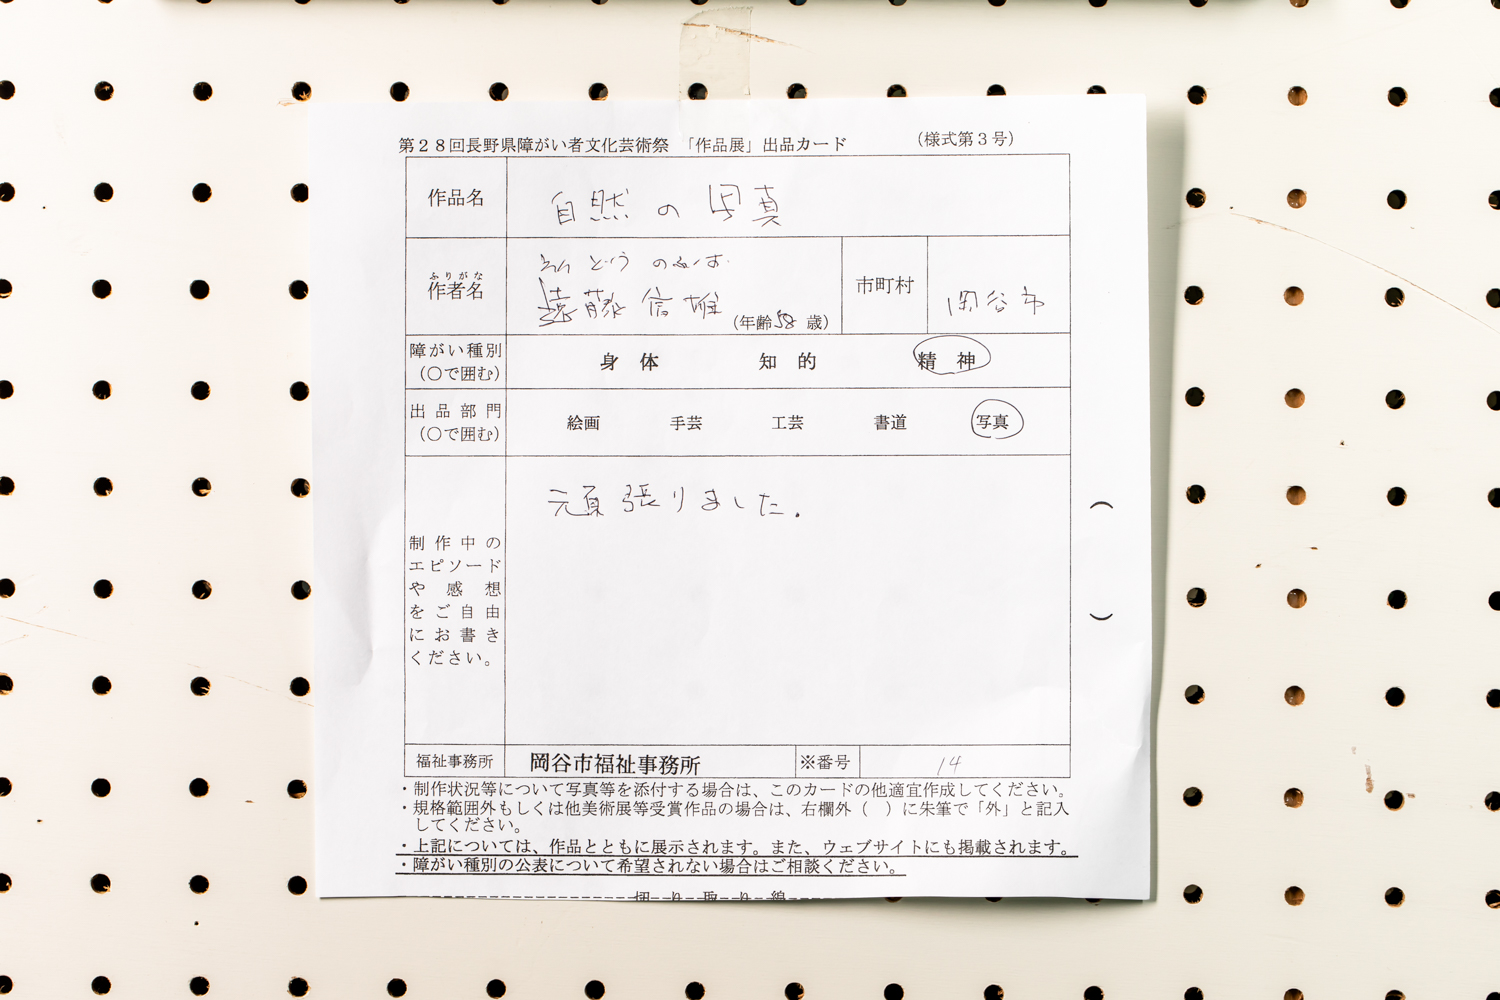 第28回長野県障がい者文化芸術祭 「作品展」出品カード (様式第3号)
作品名 自然の写真
ふりがな えんどう のぶお
作者名 遠藤信雄 (年齢58歳) 市町村 岡谷市
障がい種別 (○で囲む) 身体 知的 精神
出品部門 (○で囲む) 絵画 手芸 工芸 書道 写真
頑張りました.
制作中の
エピソード
や感想
をご自由
にお書き
ください。
( )
福祉事務所 岡谷市福祉事務所 ※番号 14
・制作状況等について写真等を添付する場合は、このカードの他適宜作成してください。
・規格範囲外もしくは他美術展等受賞作品の場合は、右欄外( )に朱筆で「外」と記入
してください。
・上記については、作品とともに展示されます。また、ウェブサイトにも掲載されます。
・障がい種別の公表について希望されない場合はご相談ください。
切り取り線